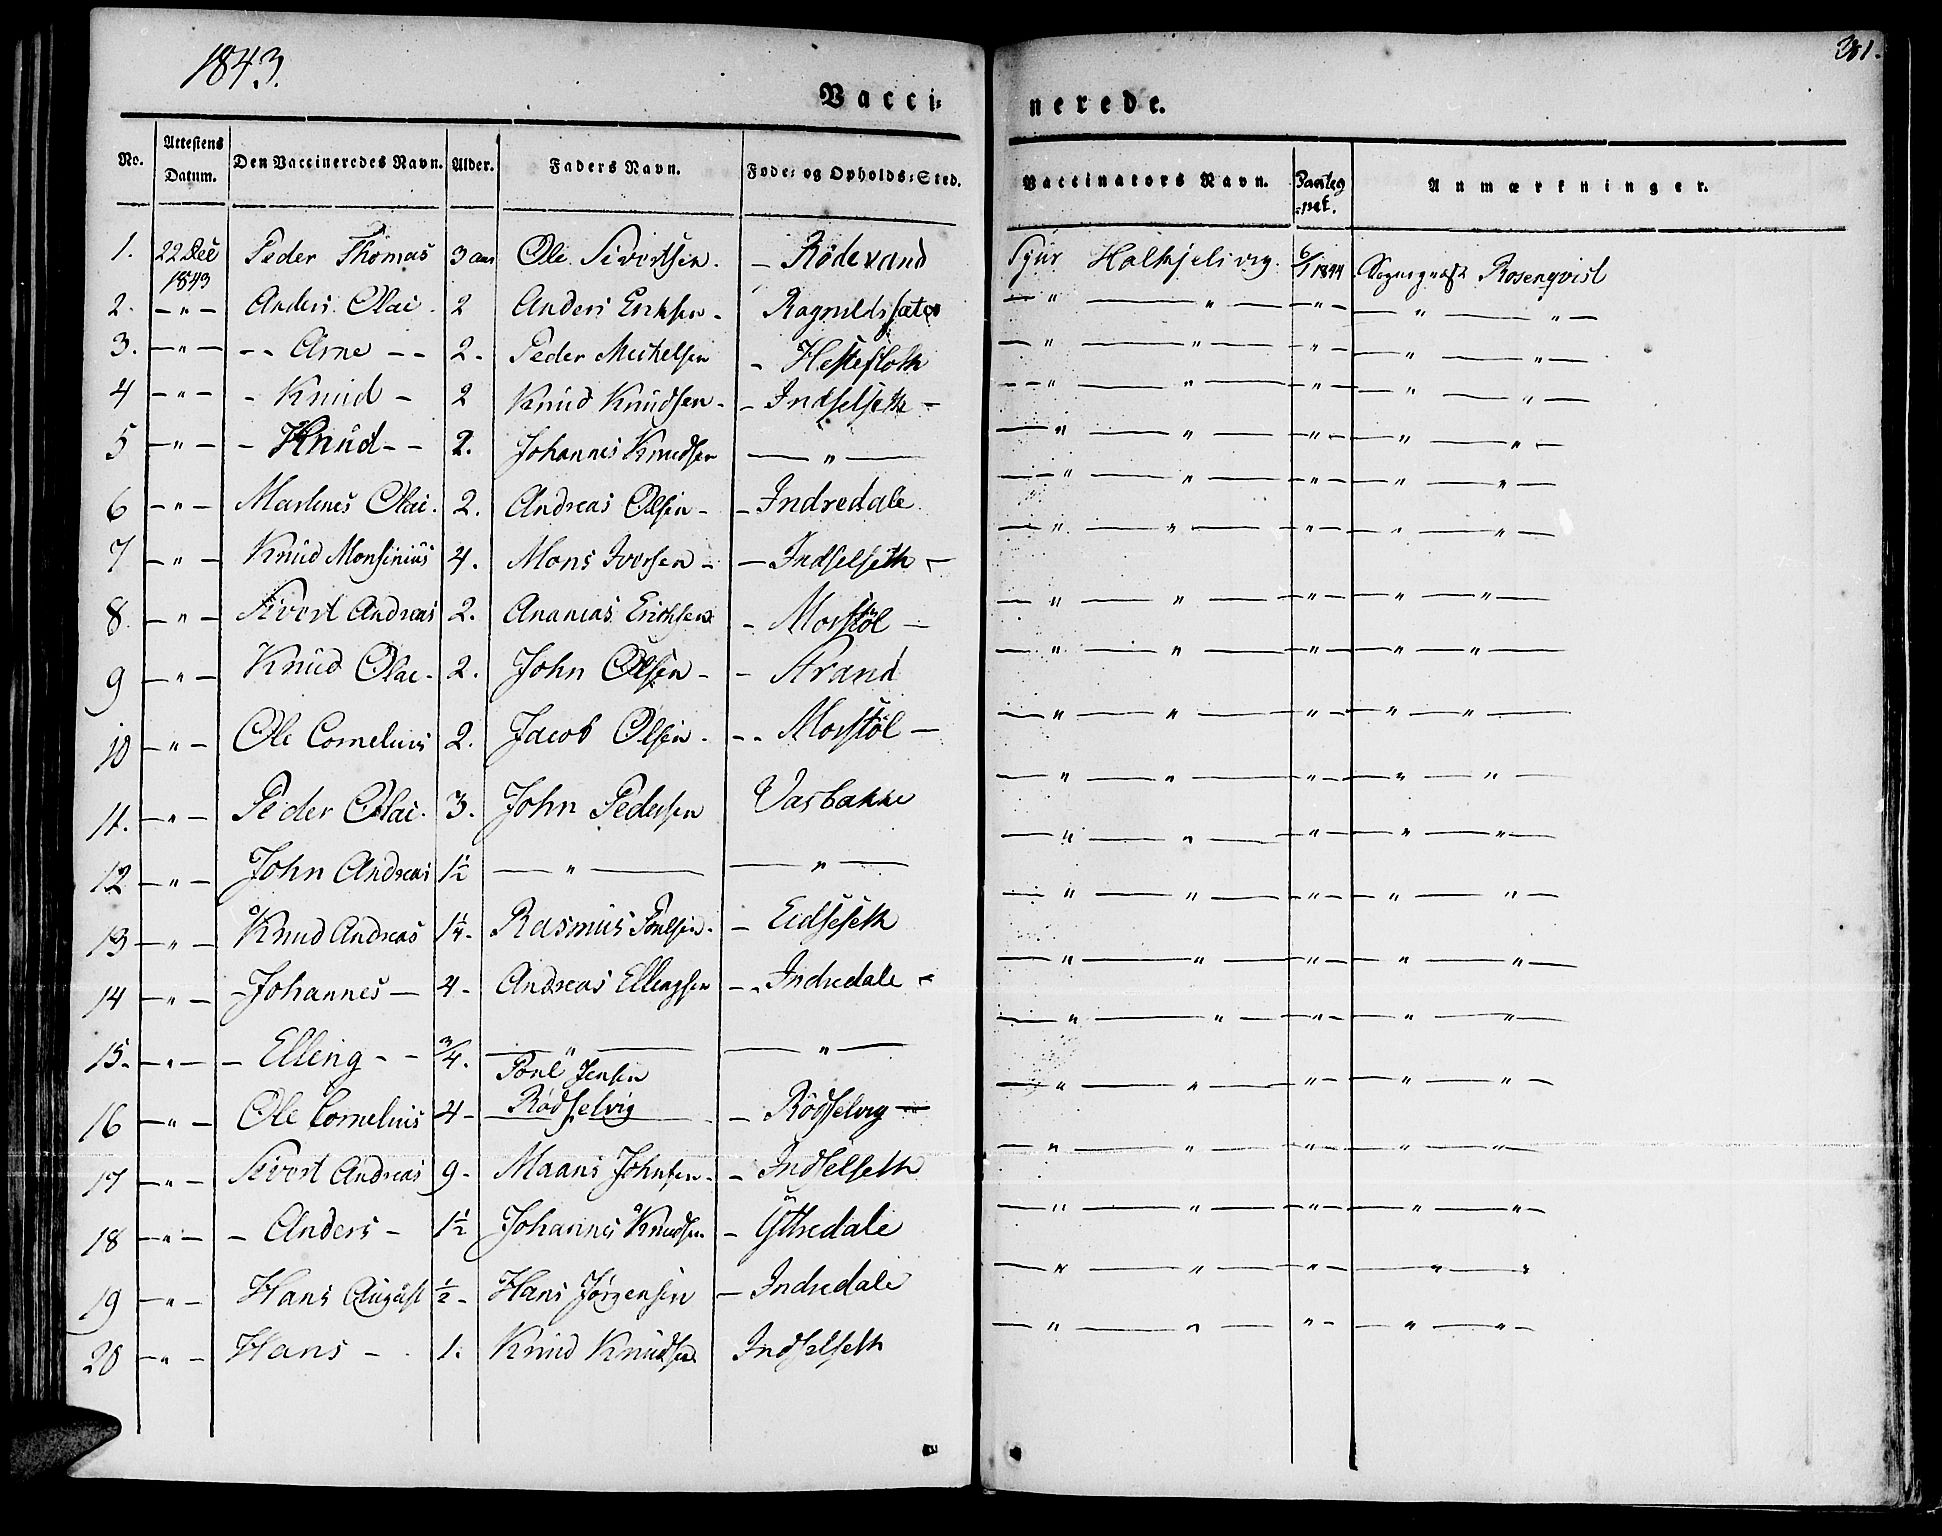 1843.
381.
Vacci=
nerede.
No. Attestens Datum. Den Vaccineredes Navn. Alder. Faders Navn. Føde= og Opholds=Sted. Vaccinators Navn. Paateg=net. Anmærkninger.
1. 22 Dec 1843 Peder Thomas 3 aar Ole Sivertsen. – Rødevand Sjur Halkjelsvig. 6/1 1844 Sognepræst Rosenqvist
2. – " – Anders Olai. 2 Anders Eriksen – Ragnildssæter – " – " – – " – – " – " –
3. – " – – – Arne – – 2. Peder Michelsen – Hestefloth – " – " – – " – – " – " –
4 – " – – Knud – 2 Knud Knudsen – – Indselseth – – " – " – – " – – " – " –
5 – " – – Knud – – 2. Johannes Knudsen – " – – " – " – – " – – " – " –
6 – " – Martines Olai. 2. Andreas Olsen – – Indredale – " – " – – " – – " – " –
7 – " – Knud Monsinius 4. Mons Iversen – – Indselseth – – " – " – – " – – " – " –
8. – " – Sivert Andreas 2. Ananias Erichsen – Morstøl – – " – " – – " – – " – " –
9 – " – Knud Olai – 2. John Olsen – – Strand – " – " – – " – – " – " –
10 – " – Ole Cornelius 2. Jacob Olsen – – – Morstøl – – " – " – – " – – " – " –
11. – " – Peder Olai. 3. John Pedersen Vasbakke – " – " – – " – – " – " –
12 – " – John Andreas 1½ – " – – " – – " – " – – " – – " – " –
13 – " – Knud Andreas 1¼ – Rasmus Poulsen – – Eidseseth – " – " – – " – – " – " –
14 – " – – Johannes – 4 – Andreas Ellingsen – – Indredale – – " – " – – " – – " – " –
15. – " – – Elling – – 3/4. – " – – " – – " – " – – " – – " – " –
16 – " – Ole Cornelius 4 – Poul Jensen Rødselvig – Rødselvig – – " – " – – " – – " – " –
17 – " – Sivert Andreas 9 – Maans Johnsen – – Indselseth – " – " – – " – – " – " –
18 – " – – Anders – 1½ Johannes Knudsen – Ytredale – " – " – – " – – " – " –
19 – " – Hans August ½ – Hans Jørgensen – Indredale – " – " – – " – – " – " –
20 – " – Hans – . 1. Knud Knudsen Indselseth – " – " – " – – " – " –